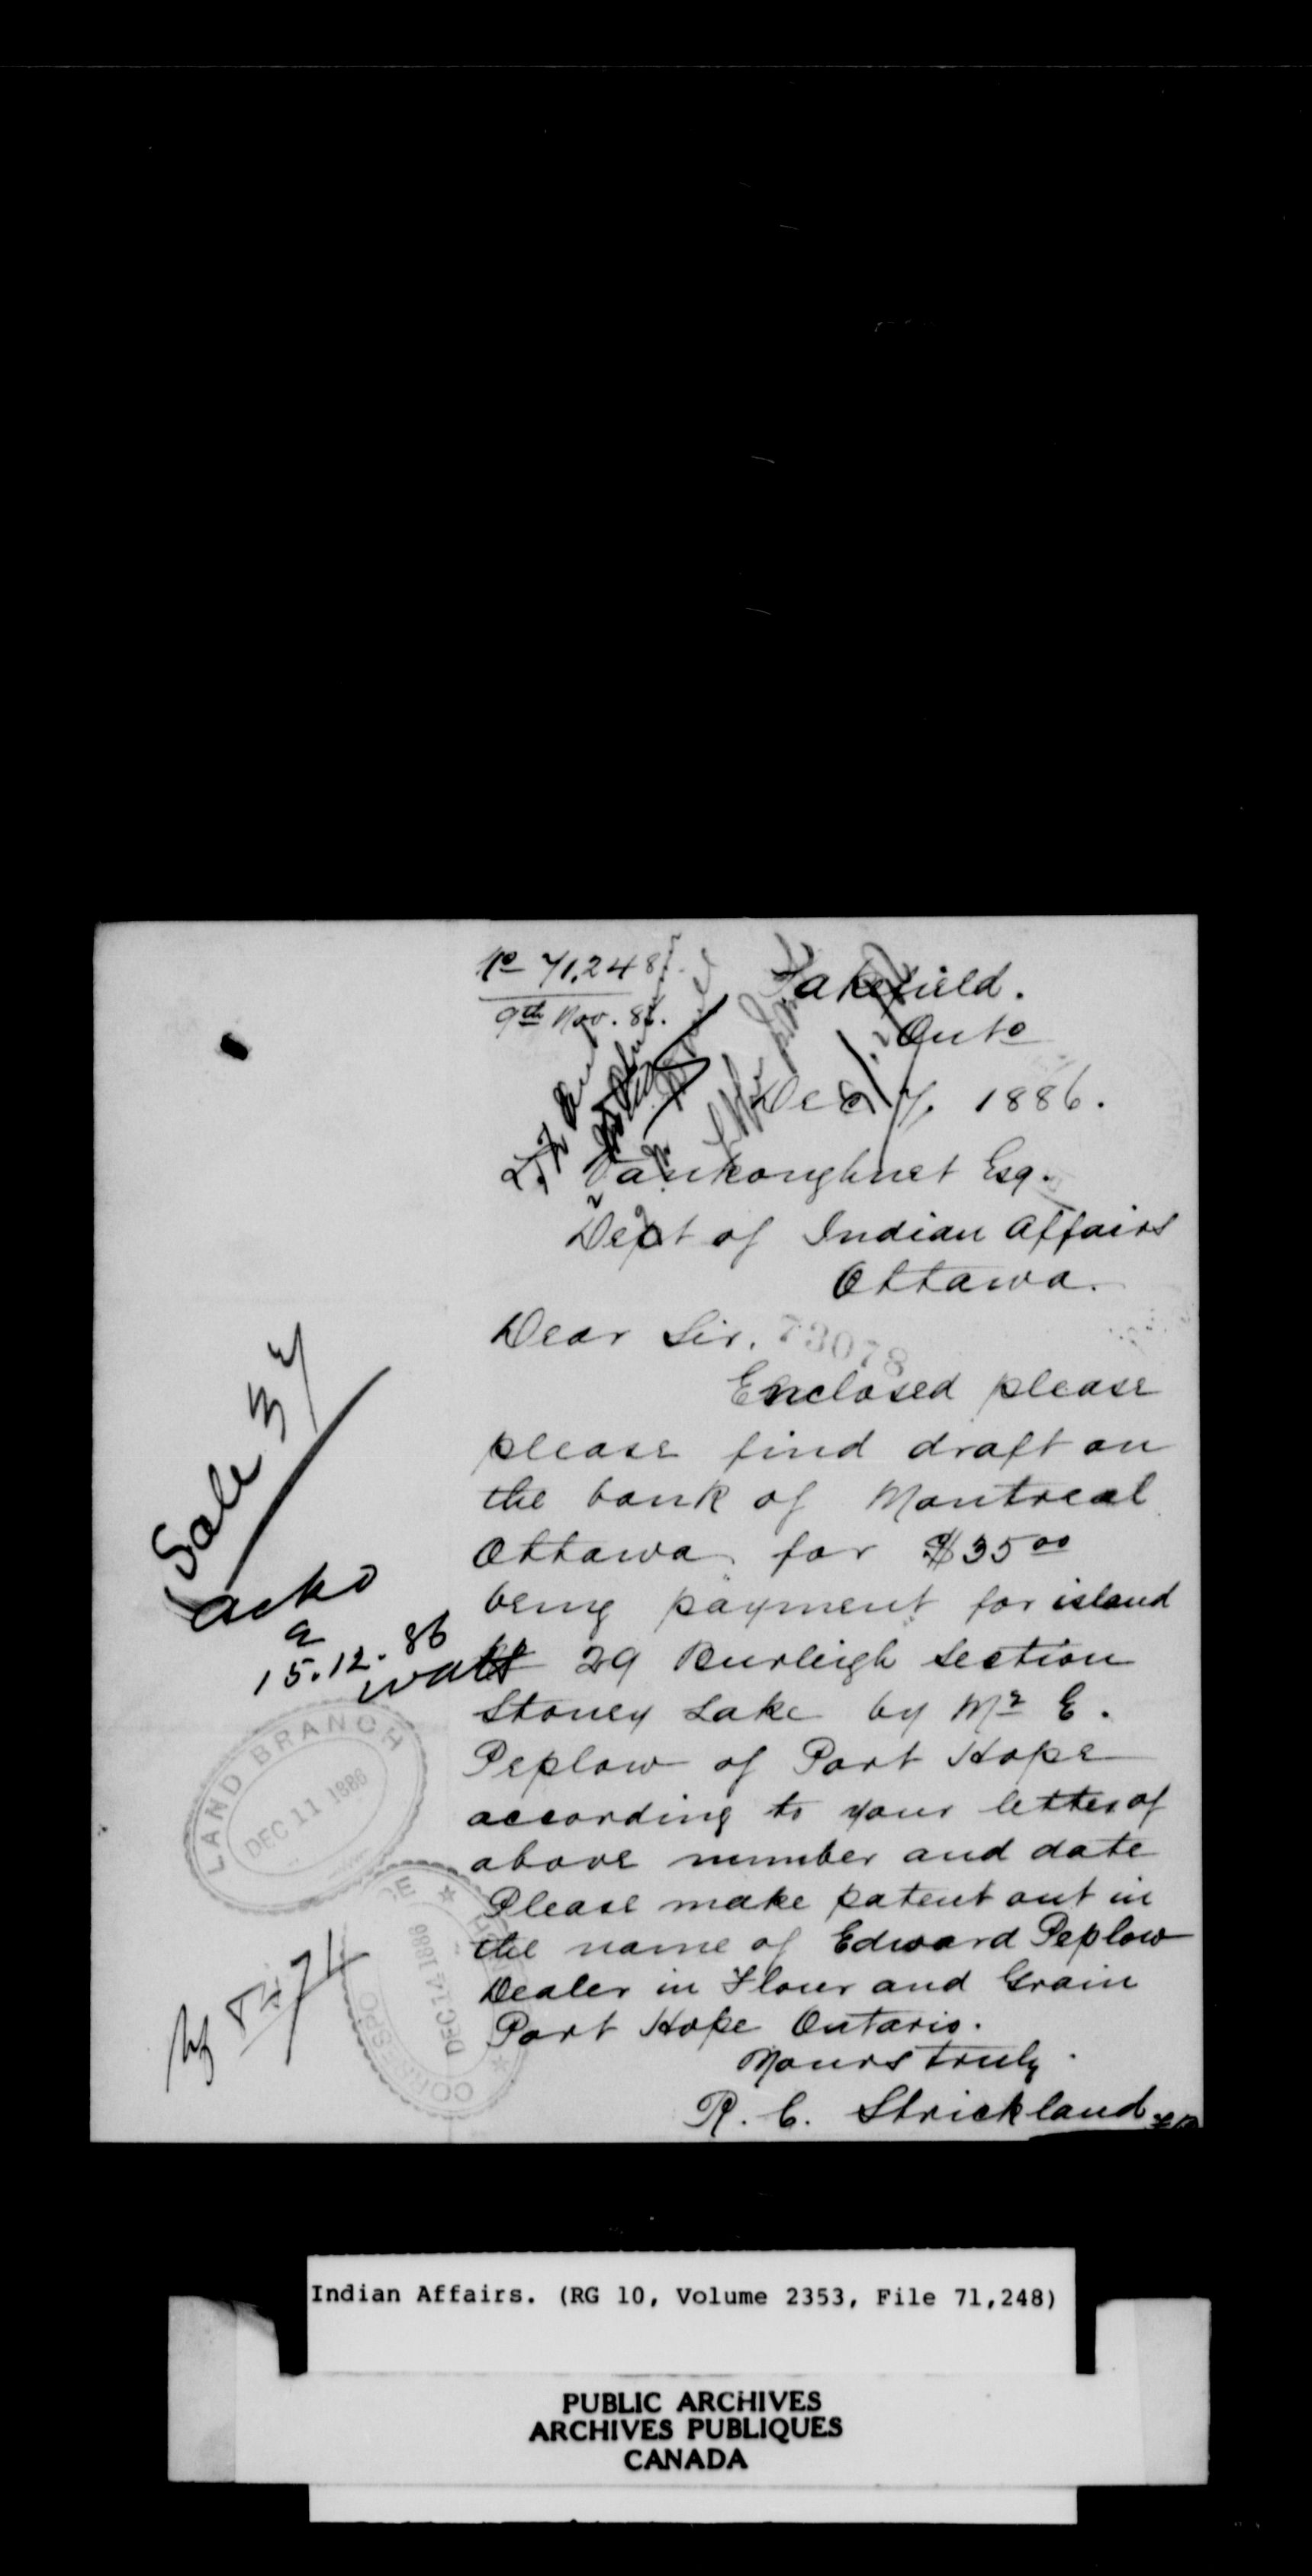 No 71,248
9th Nov. 86.
Lakefield.
Onto
Dec 7. 1886.
Vankoughnet Esq.
Dept of Indian Affairs
Ottawa.
Dear Sir.
73078
Enclosed please
please find draft on
the bank of Montreal
Ottawa for $35 00
being payment for island
29 Burleigh Section
Stoney Lake by Mr E.
Peplow of Port Hope
according to your letter of
above number and date
Please make patent out in
the name of Edward Peplow
Dealer in Flour and Grain
Port Hope Ontario.
Yours truly.
R. C. Strickland
Sale 34
ackd
15.12.86
LAND BRANCH
DEC 11 1886
DEC 14 1886
Indian Affairs. (RG 10, Volume 2353, File 71,248)
PUBLIC ARCHIVES
ARCHIVES PUBLIQUES
CANADA